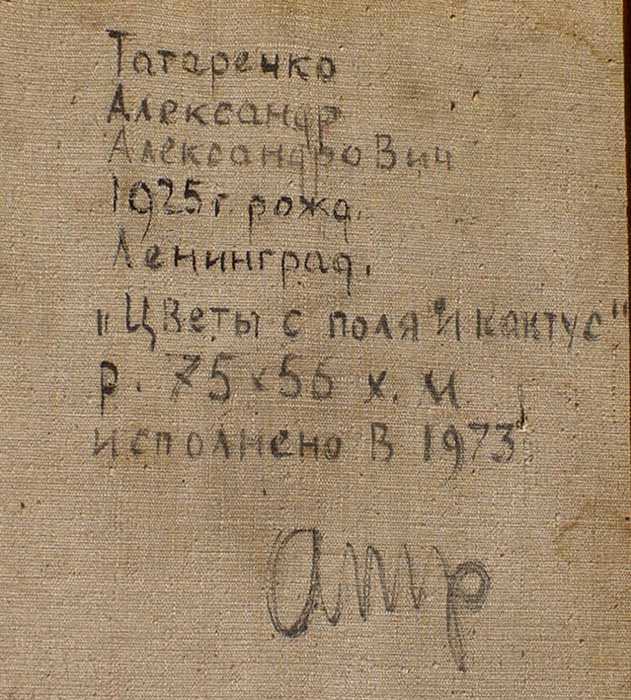 Татаренко
Александр
Александрович
1925 г. рожд.
Ленинград.
"Цветы с поля" и кактус"
р. 75×56 х. м
исполнено в 1973
атр